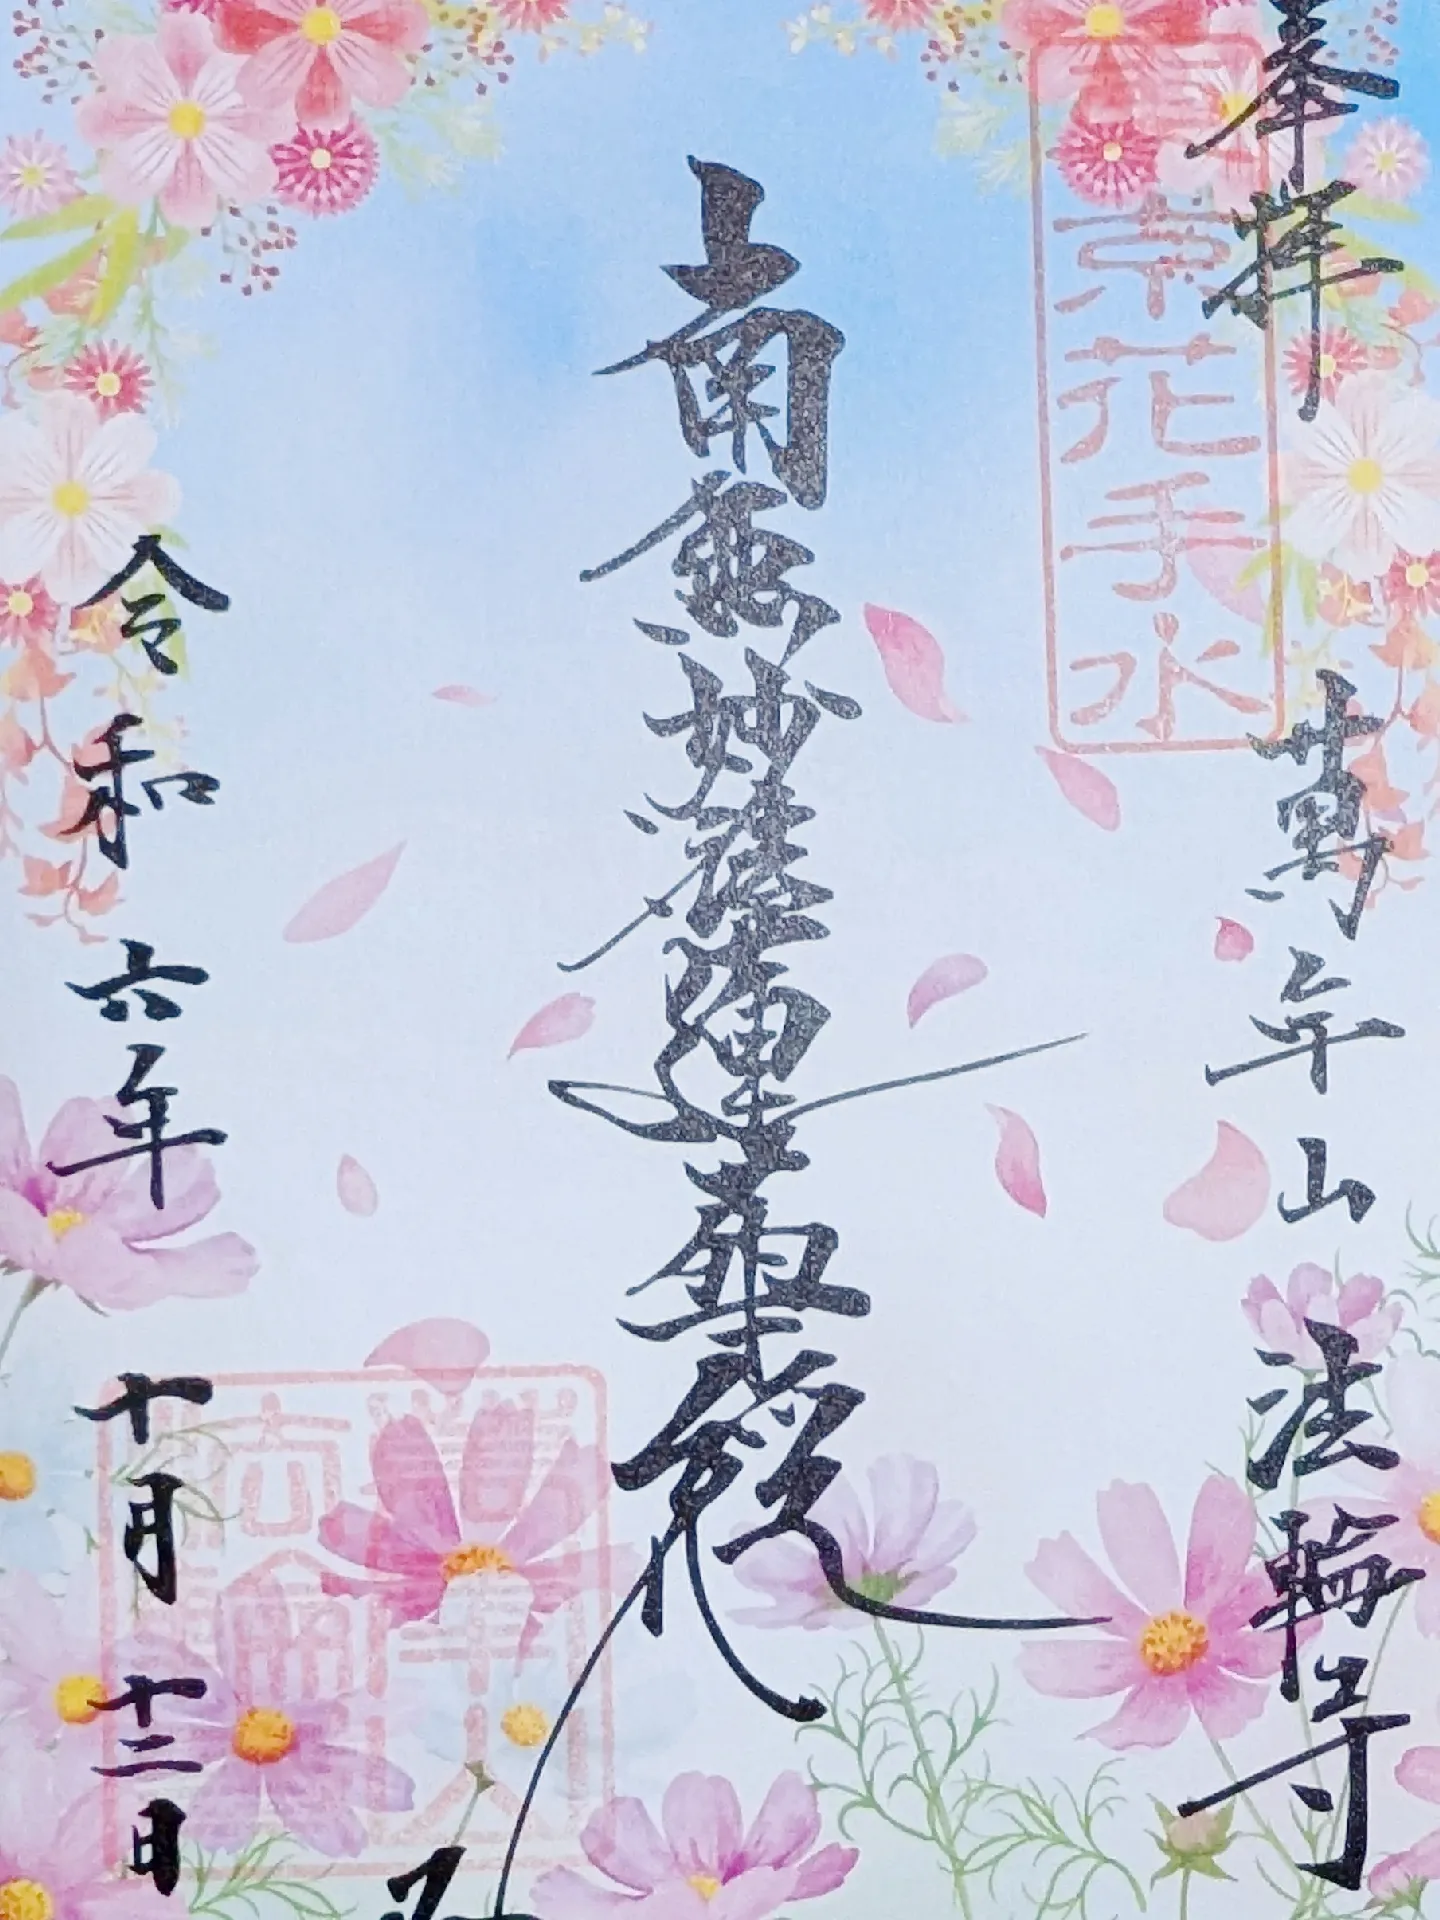 奉拝
萬年山 法輪寺
東京花手水
南無妙法蓮華経
令和六年 十月十二日